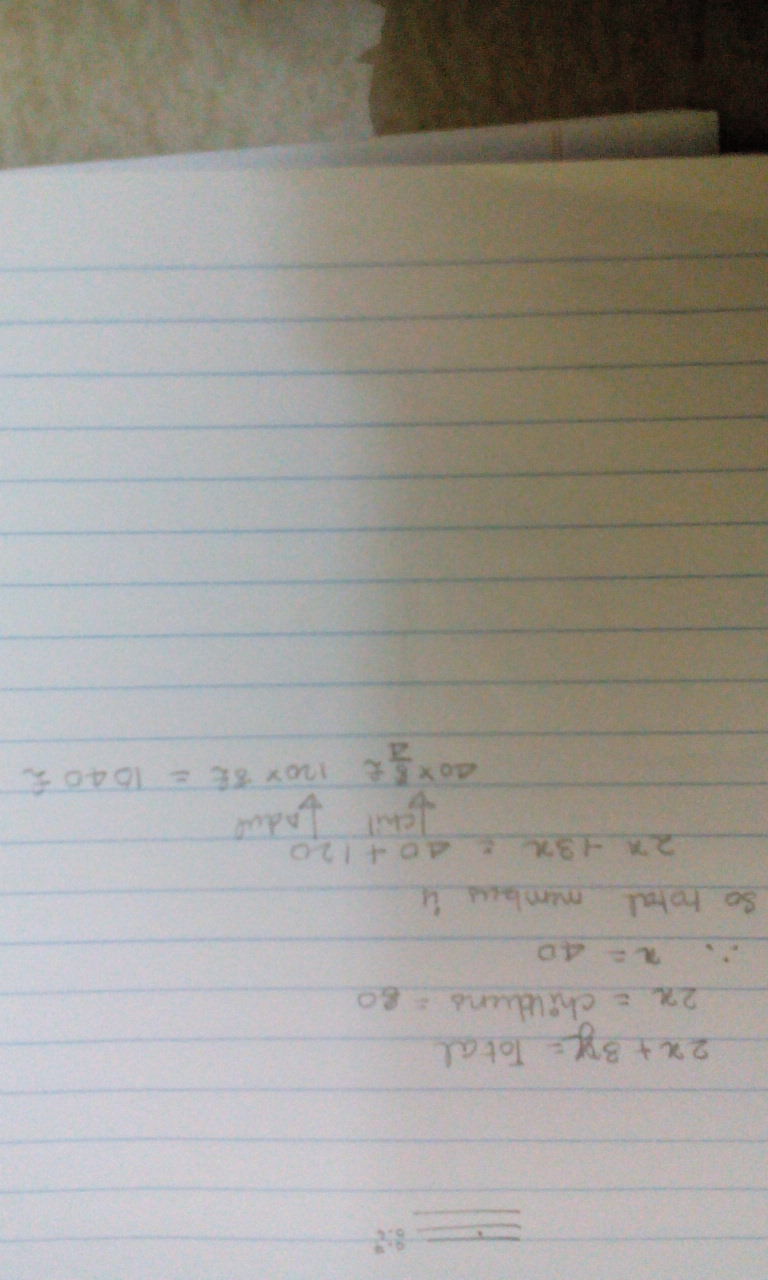 2x + 3x = Total
2x = childrens = 80
∴ x = 40
so total numbers is
2x + 3x = 40 + 120
chil adul
40 × 8/2 £ 120 × 8£ = 1040 £